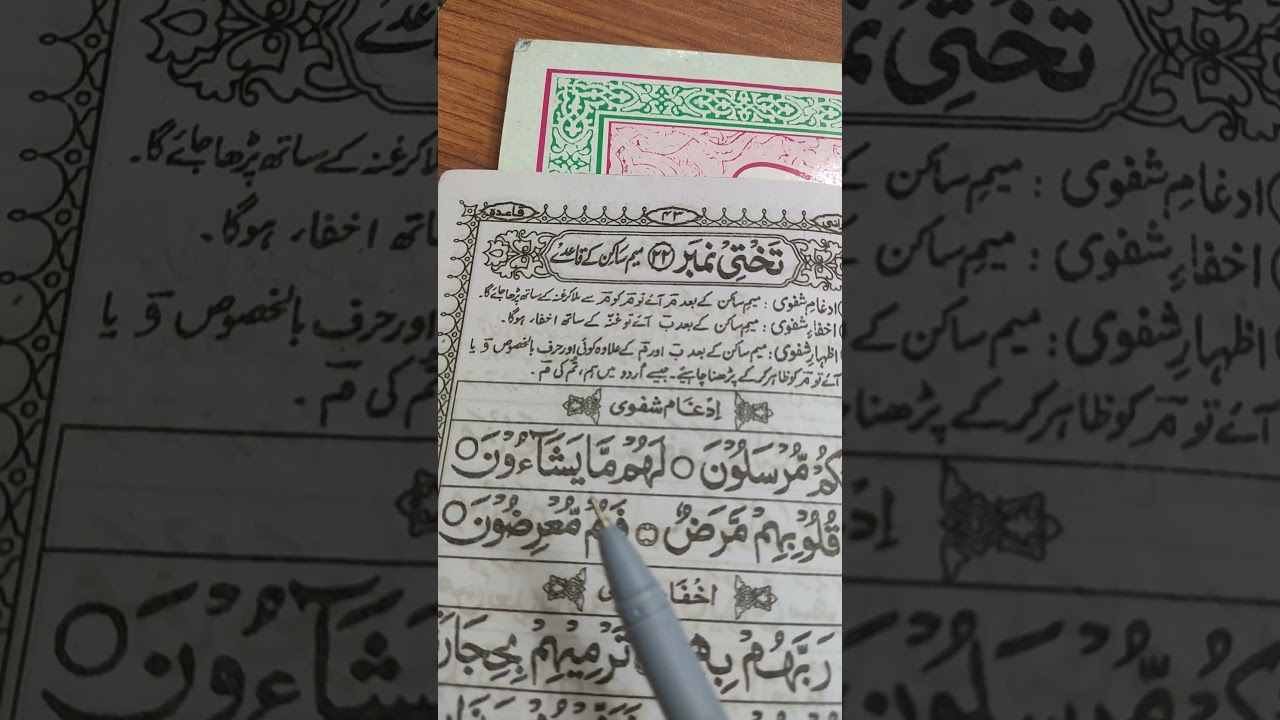 قاعدة ۴۳
تختی نمبر ۲۲ میم ساکن کے قاعدے
ادغامِ شفوی : میم ساکن کے بعد مۤ آئے تو مۤ کو مۤ سے ملا کر غنہ کے ساتھ پڑھا جائے گا۔
اخفاءِ شفوی : میم ساکن کے بعد بۤ آئے تو غنّہ کے ساتھ اخفاء ہوگا۔
اظہارِ شفوی : میم ساکن کے بعد بۤ اور مۤ کے علاوہ کوئی اور حرف بالخصوص وۤ یا
آئے تو مۤ کو ظاہر کر کے پڑھنا چاہیئے۔ جیسے اُردو میں ہم، تُم کی مۤ۔
اِدْغَام شفوی
كُمْ مُّرْسَلُوْنَ ○ لَهُمْ مَّا يَشَآءُوْنَ ○
قُلُوْبِهِمْ مَّرَضٌ ○ مُّعْرِضُوْنَ ○
رَبَّهُمْ تَرْمِيْهِمْ